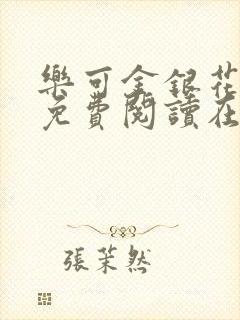 樂可金銀花
免費閱讀在
張茉然